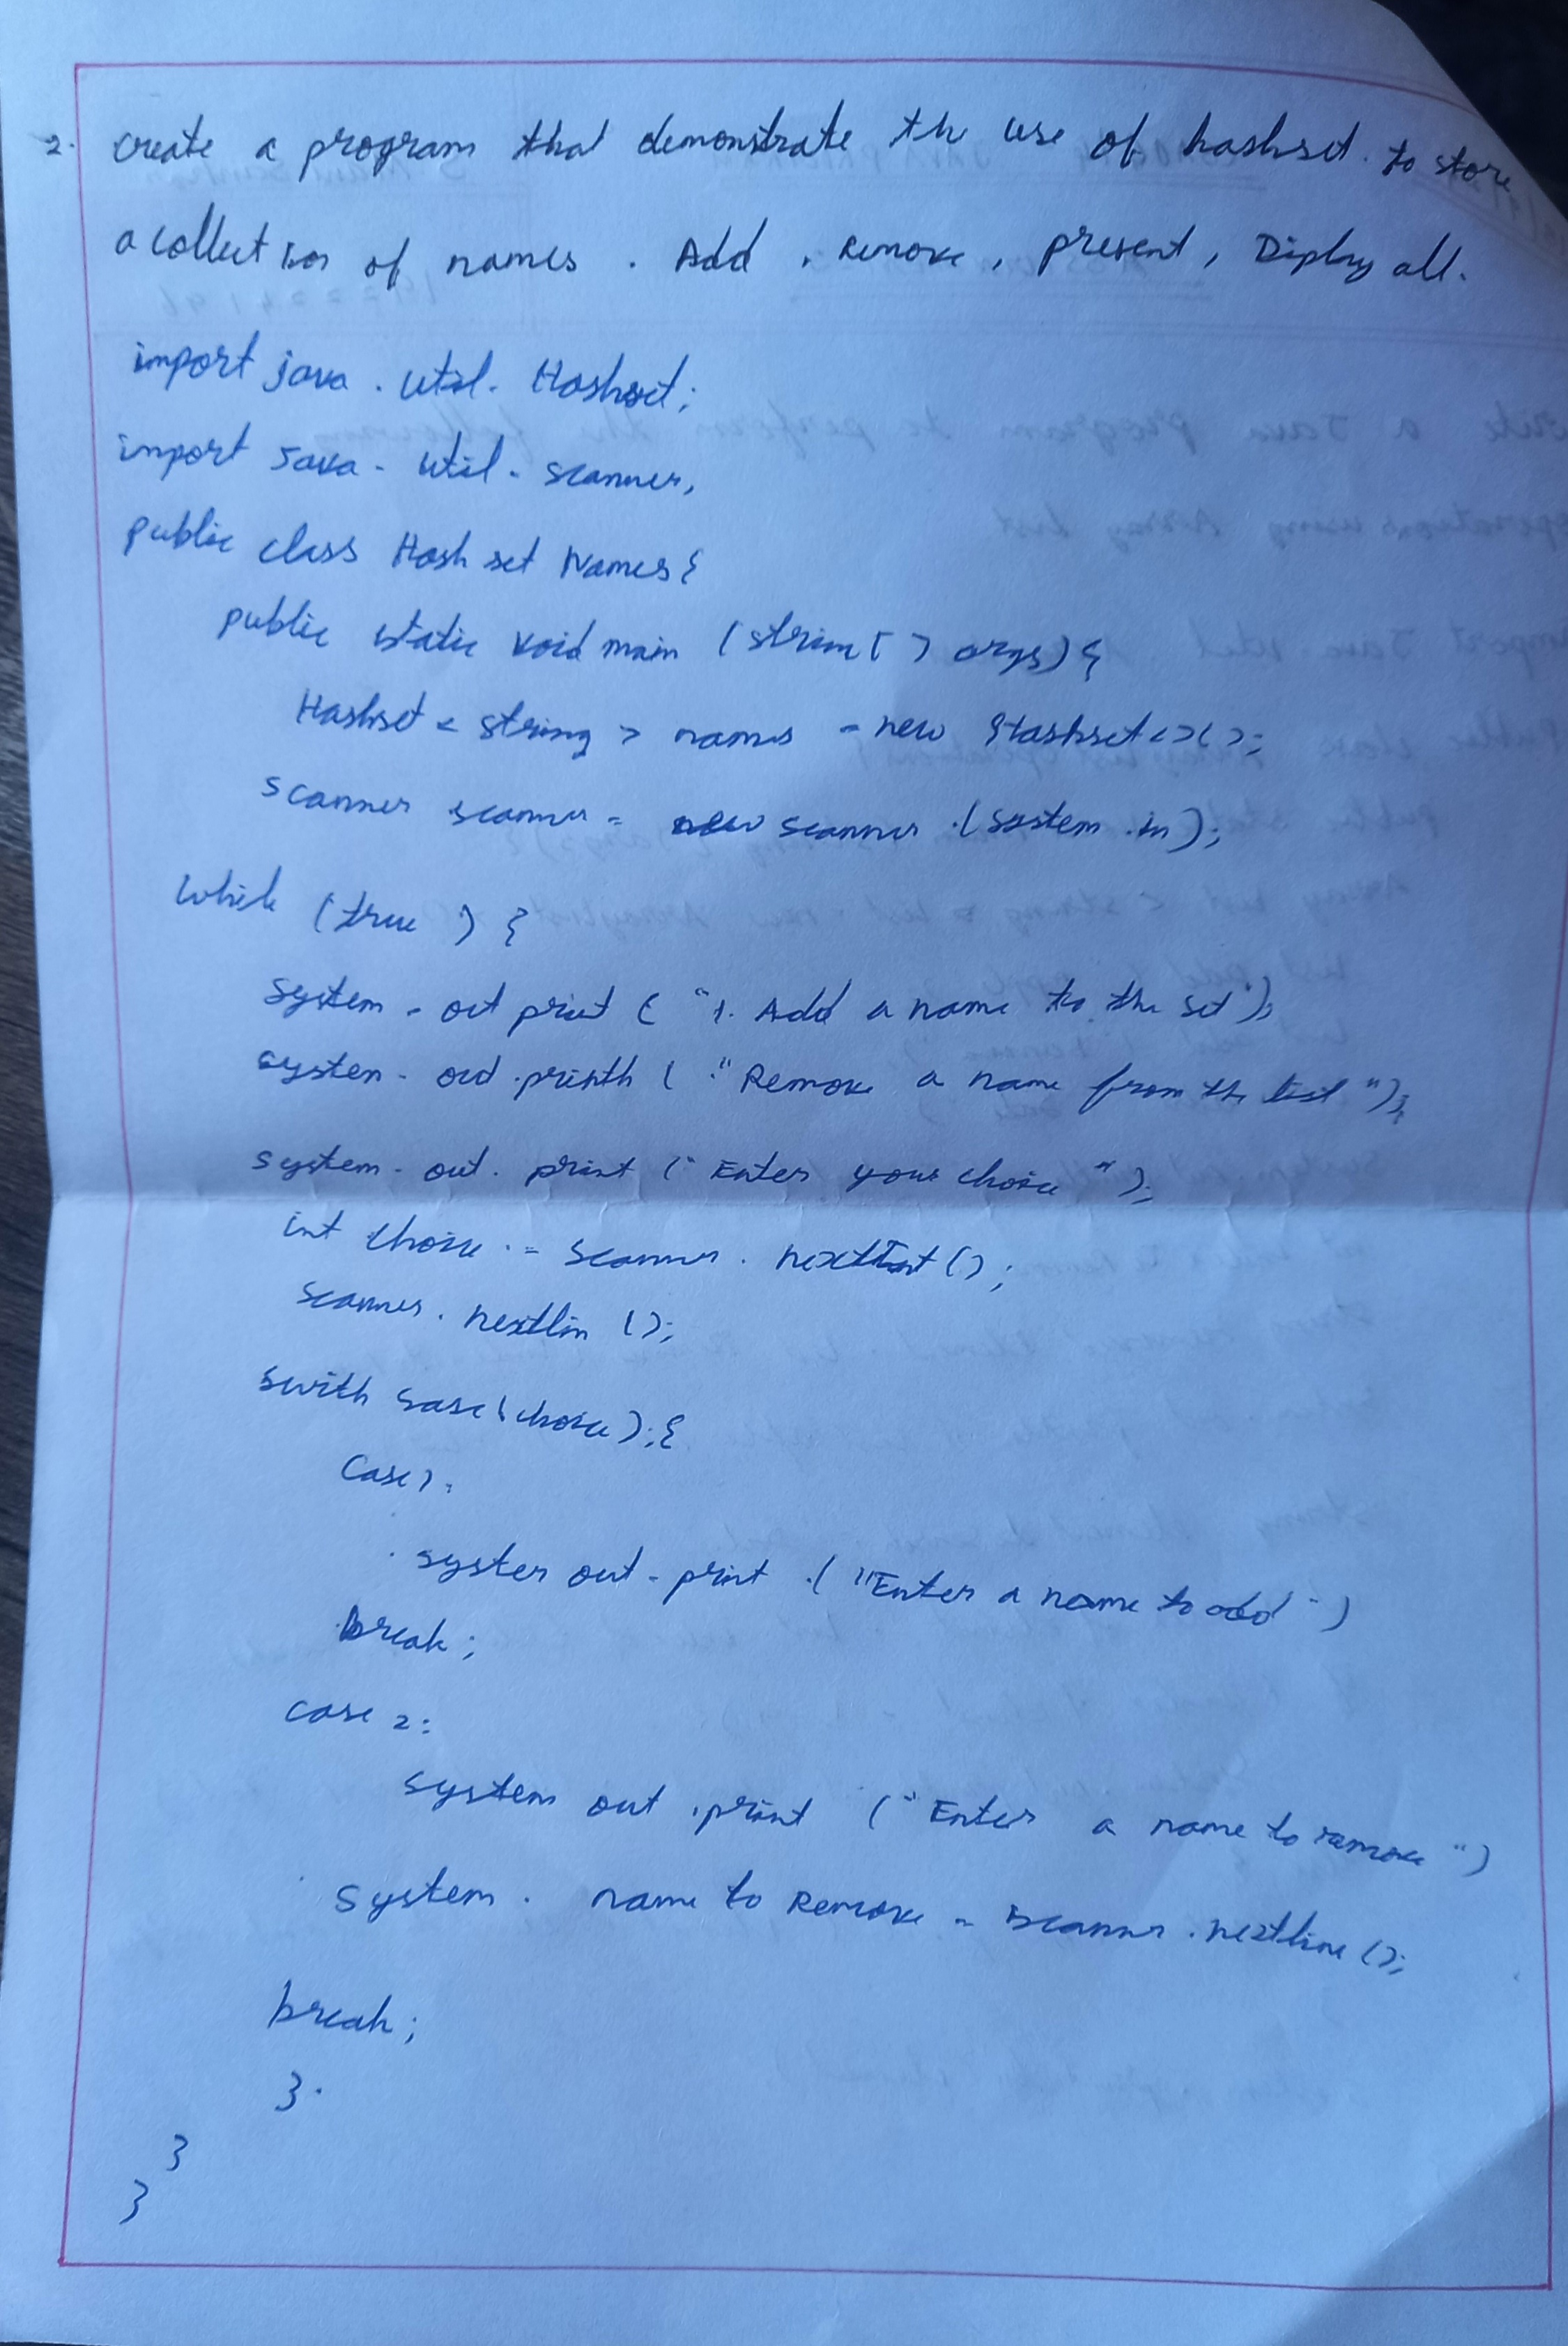 2. create a program that demonstrate th use of hashset. to store
a collection of names. Add, remove, present, Diplay all.
import java.util.Hashset;
import Java.util.scanner,
public class Hash set Names{
public static void main (string[] args){
Hashset<string> names = new Hashset<>();
scanner scanner = new scanner.(system.in);
while (true) {
system.out print ("1. Add a name to the set");
system.out.println ("Remove a name from the list");
system.out.print ("Enter your choice");
int choice = scanner.nextInt();
scanner.nextlin();
swith case(choice);{
Case 1.
system out.print.("Enter a name to add")
break;
case 2:
system out.print ("Enter a name to remove")
System. name to Remove = scanner.nextline();
break;
}
}
}